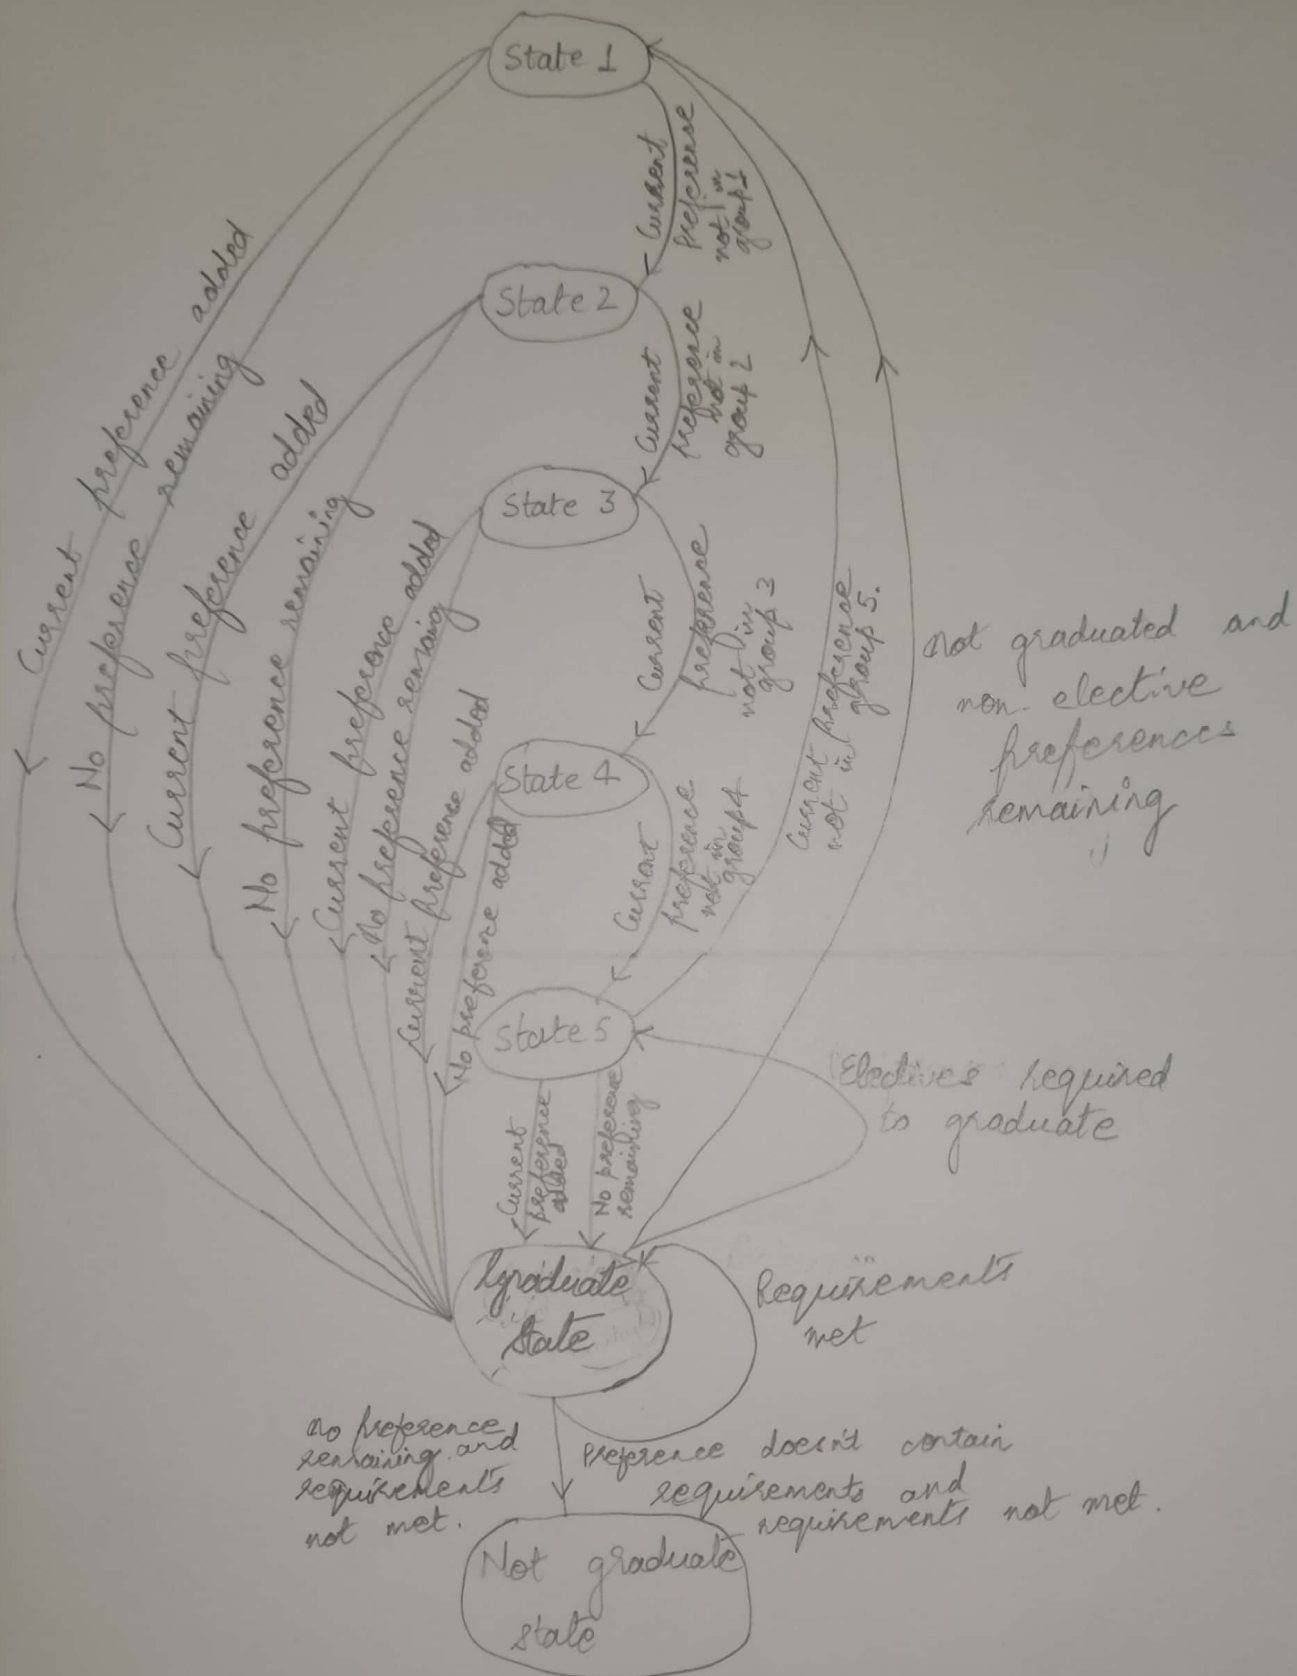 State 1
Current
preference
not in
group 1
State 2
Current
preference
not in
group 2
State 3
Current
preference
not in
group 3
State 4
Current
preference
not in
group 4
State 5
Current preference
not in group 5.
Current preference added
No preference remaining
Current preference added
No preference remaining
Current preference added
No preference remaining
Current preference added
No preference added
Current
preference
added
No preference
remaining
not graduated and
non-elective
preferences
remaining
Electives required
to graduate
graduate
state
Requirements
met
no preference
remaining and
requirements
not met.
Preference doesn't contain
requirements and
requirements not met.
Not graduate
state